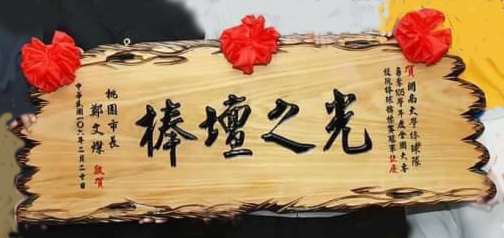 賀 開南大學棒球隊
勇奪105學年度全國大專
校院棒球錦標賽冠軍誌慶
光之壇棒
桃園市長
鄭文燦 敬賀
中華民國一〇六年二月二十日